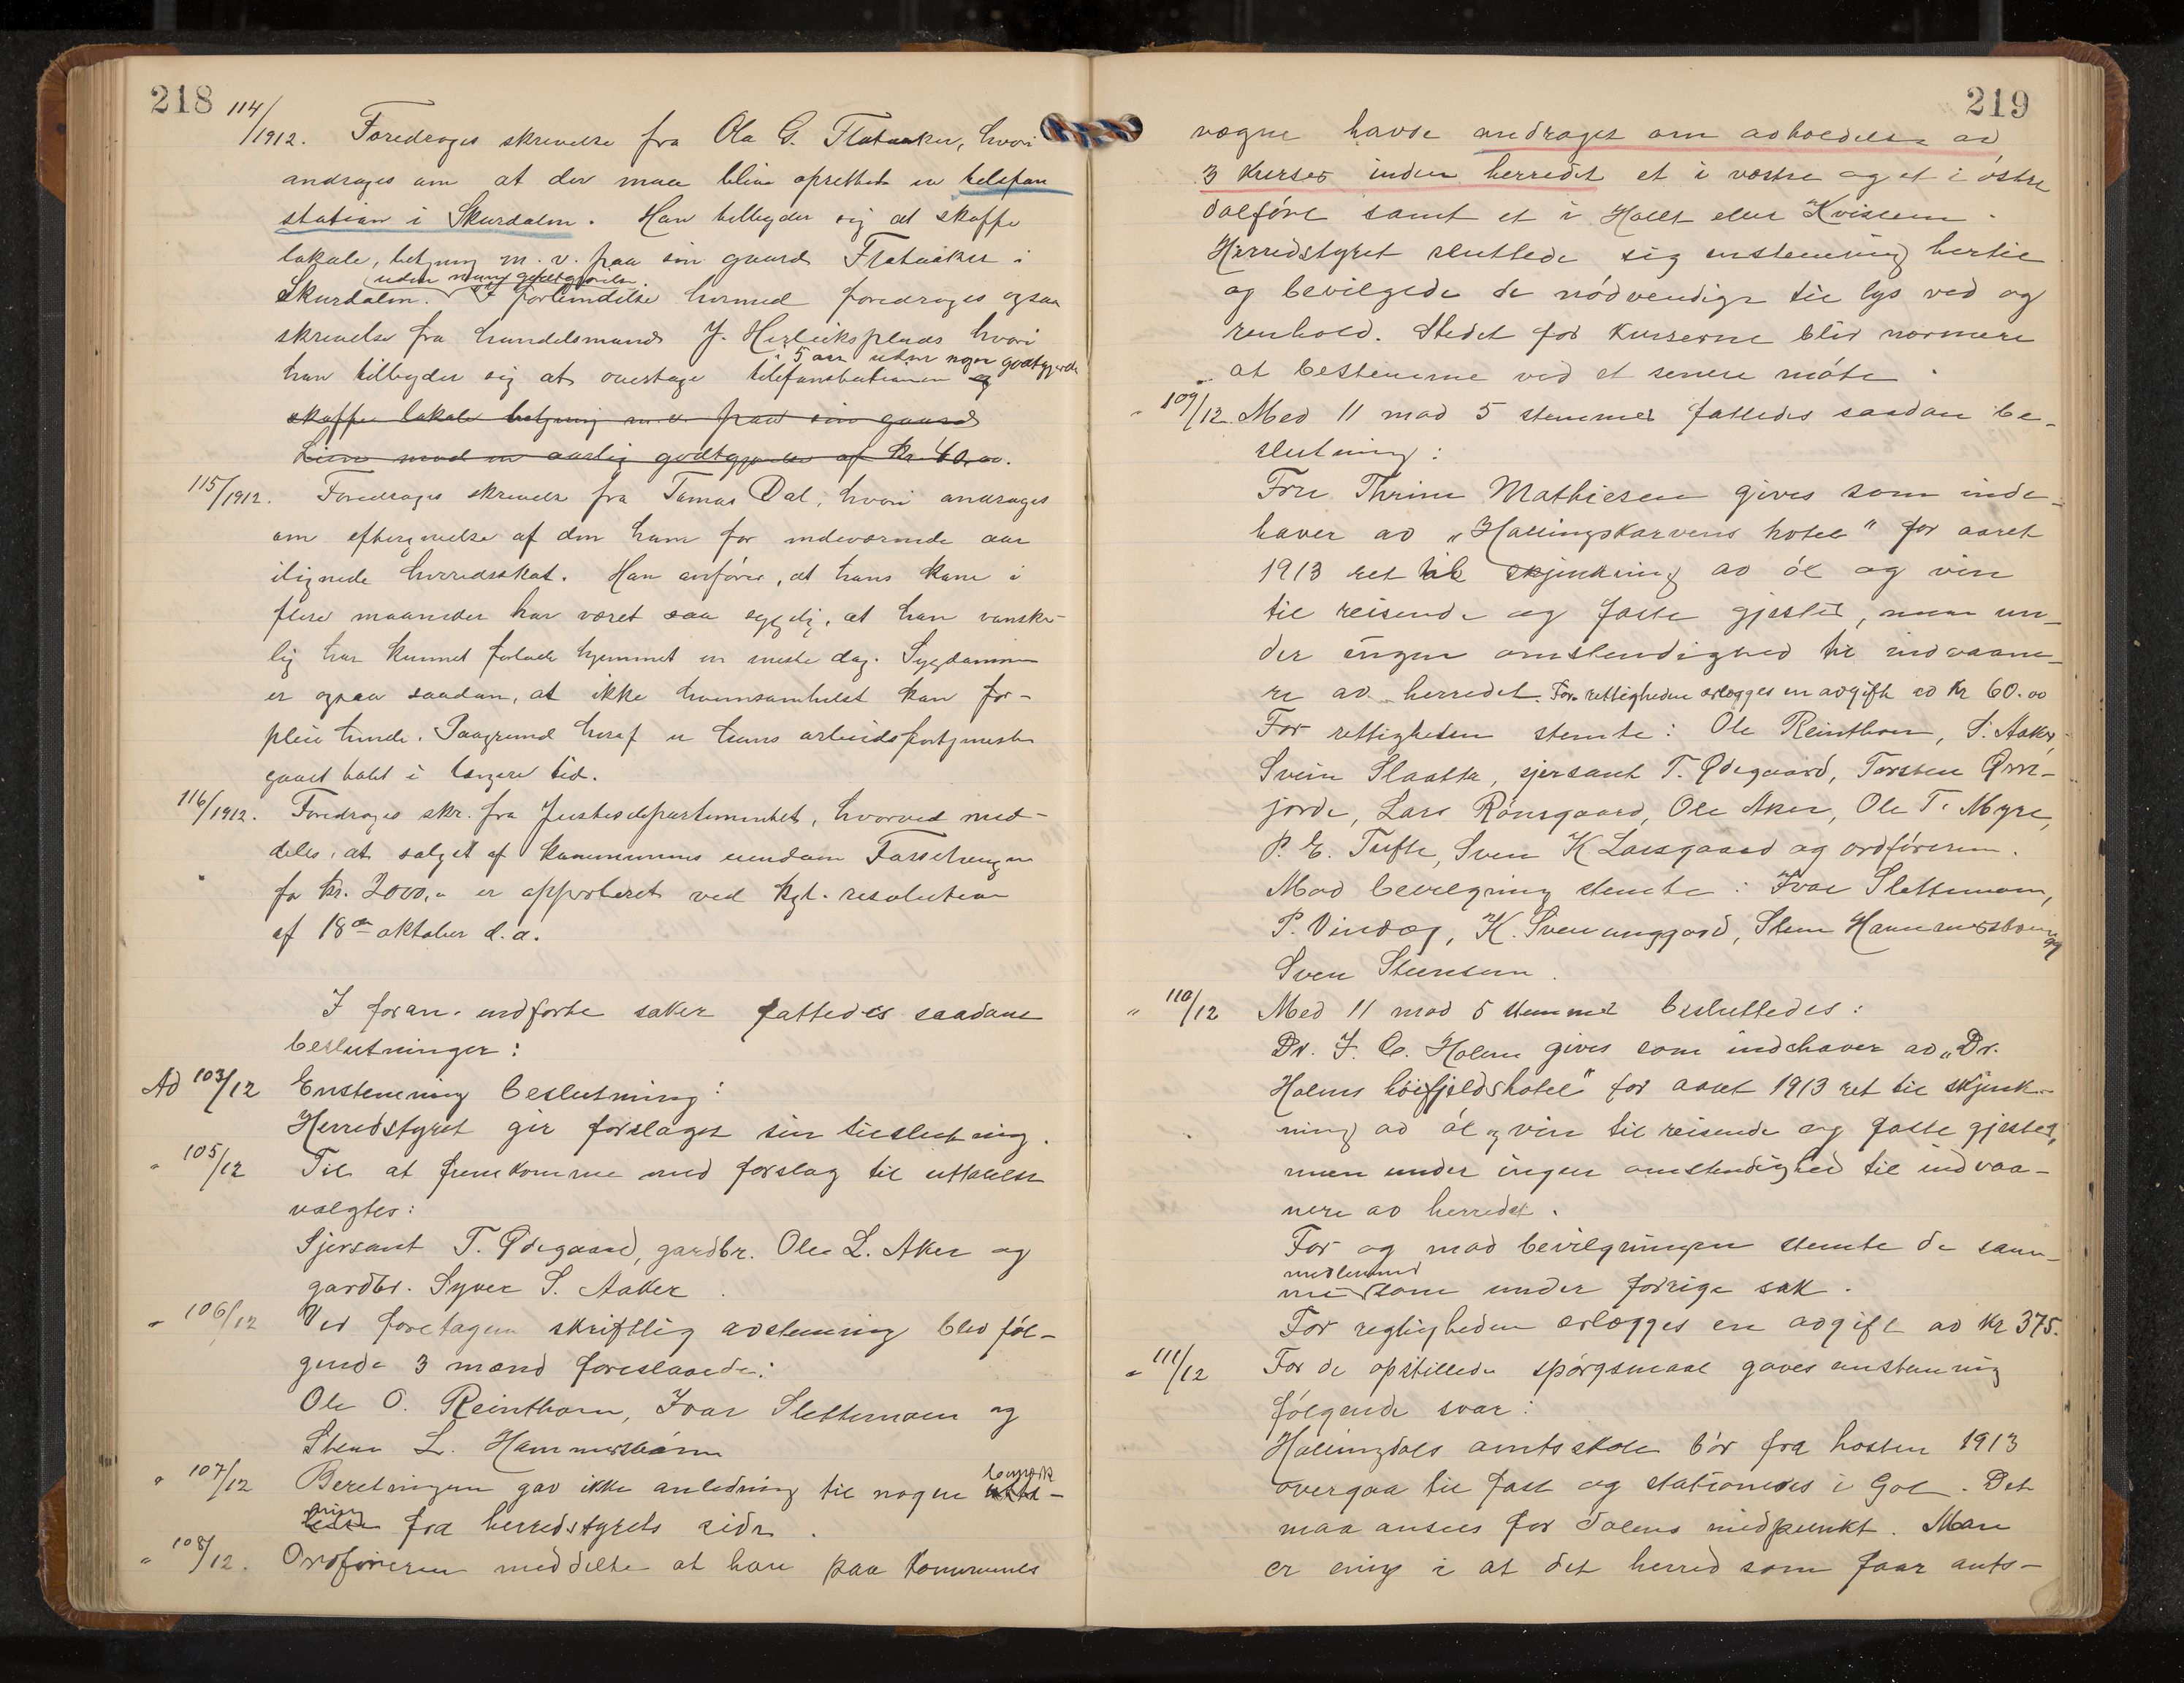 218
114/1912. Foredroges skrivelse fra Ola G. Flataaker, hvori
andrages om at der maa blive oprettet en telefon
station i Skurdalen. Han tilbyder sig at skaffe
lokale, betjening m. v. paa sin gaard Flataaker i
uden nogen godtgjørelse.
Skurdalen. I forbindelse hermed foredroges ogsaa
skrivelse fra handelsmand J. Herleiksplads hvori
i 5 aar uden nogen godtgjørelse
han tilbyder sig at overtage telefonstationen og
skaffe lokale betjening m. v. paa sin gaard
Lien mod en aarlig godtgjørelse af kr. 40,00.
115/1912. Foredroges skrivelse fra Tomas Dal, hvori andrages
om eftergivelse af den ham for indeværende aar
ilignede herredsskat. Han anfører, at hans kone i
flere maaneder har været saa sygelig, at han vanske-
lig har kunnet forlade hjemmet en eneste dag. Sygdommen
er ogsaa saadan, at ikke hvemsomhelst kan for-
pleie hende. Paagrund heraf er hans arbeidsfortjeneste
gaaet tabt i længere tid.
116/1912. Foredroges skr. fra Justisdepartementet, hvorved med-
deles, at salget af kommunens eiendom
for kr. 2000,00 er approberet ved kgl. resolution
af 18de oktober d. a.
I foran indførte saker fattedes saadane
beslutninger:
Ad 103/12 Enstemmig beslutning:
Herredstyret gir forslaget sin tilslutning.
" 105/12 Til at fremkomme med forslag til uttalelse
valgtes:
Sjersant T. Ødegaard, gardbr. Ole L. Aker og
gardbr. Syver S. Aaker.
" 106/12 Ved foretagen skriftlig avstemning blev føl-
gende 3 mænd foreslaaede:
Ole O. Reinthon, Ivar Slettemoen og
Sten L. Hammersbøen
" 107/12 Beretningen gav ikke anledning til nogen bemærk-
ning fra herredstyrets side.
" 108/12. Ordføreren meddelte at han paa kommunens
219
vegne havde andraget om avholdelse av
3 kurser inden herredet et i vestre og et i østre
dalføre samt et i Hallt eller Kvislen.
Herredstyret sluttede sig enstemmig hertil
og bevilgede de nødvendige til lys ved og
renhold. Stedet for kurserne blir nærmere
at bestemme ved et senere møte.
" 109/12. Med 11 mod 5 stemmer fattedes saadan be-
slutning:
Fru Thrine Mathiesen gives som inde-
haver av "Hallingskarvens hotel" for aaret
1913 ret til skjenkning av øl og vin
til reisende og faste gjester, men un-
der ingen omstendighed til indvaane-
re av herredet. For rettigheden erlægges en avgift av kr 60.00
For rettigheden stemte: Ole Reinthon, S. Aaker,
Svein Slaatta, sjersant T. Ødegaard, Torsten Ørte-
jorde, Lars Rønsgaard, Ole Aker, Ole T. Myre,
P. E. Tufte, Sven K Larsgaard og ordføreren.
Mod bevilgning stemte: Ivar Slettemoen,
P. Vindeg, K. Svenunggard, Sten Hammersbøen og
Sven Stensen.
" 110/12 Med 11 mod 5 stemmer besluttedes:
Dr. I. C. Holm gives som indehaver av "Dr.
Holms høifjeldshotel" for aaret 1913 ret til skjenk-
ning av øl og vin til reisende og faste gjester,
men under ingen omstendighed til indvaa-
nere av herredet.
For og mod bevilgningen stemte de sam-
medlemmer
me som under forrige sak.
For regtigheden erlægges en avgift av kr 375.
" 111/12 For de opstillede spørgsmaal gaves enstemmig
følgende svar:
Hallingdals amtsskole bør fra høsten 1913
overgaa til fast og stationeres i Gol. Det
maa ansees for dalens midpunkt. Man
er enig i at det herred som faar amts-